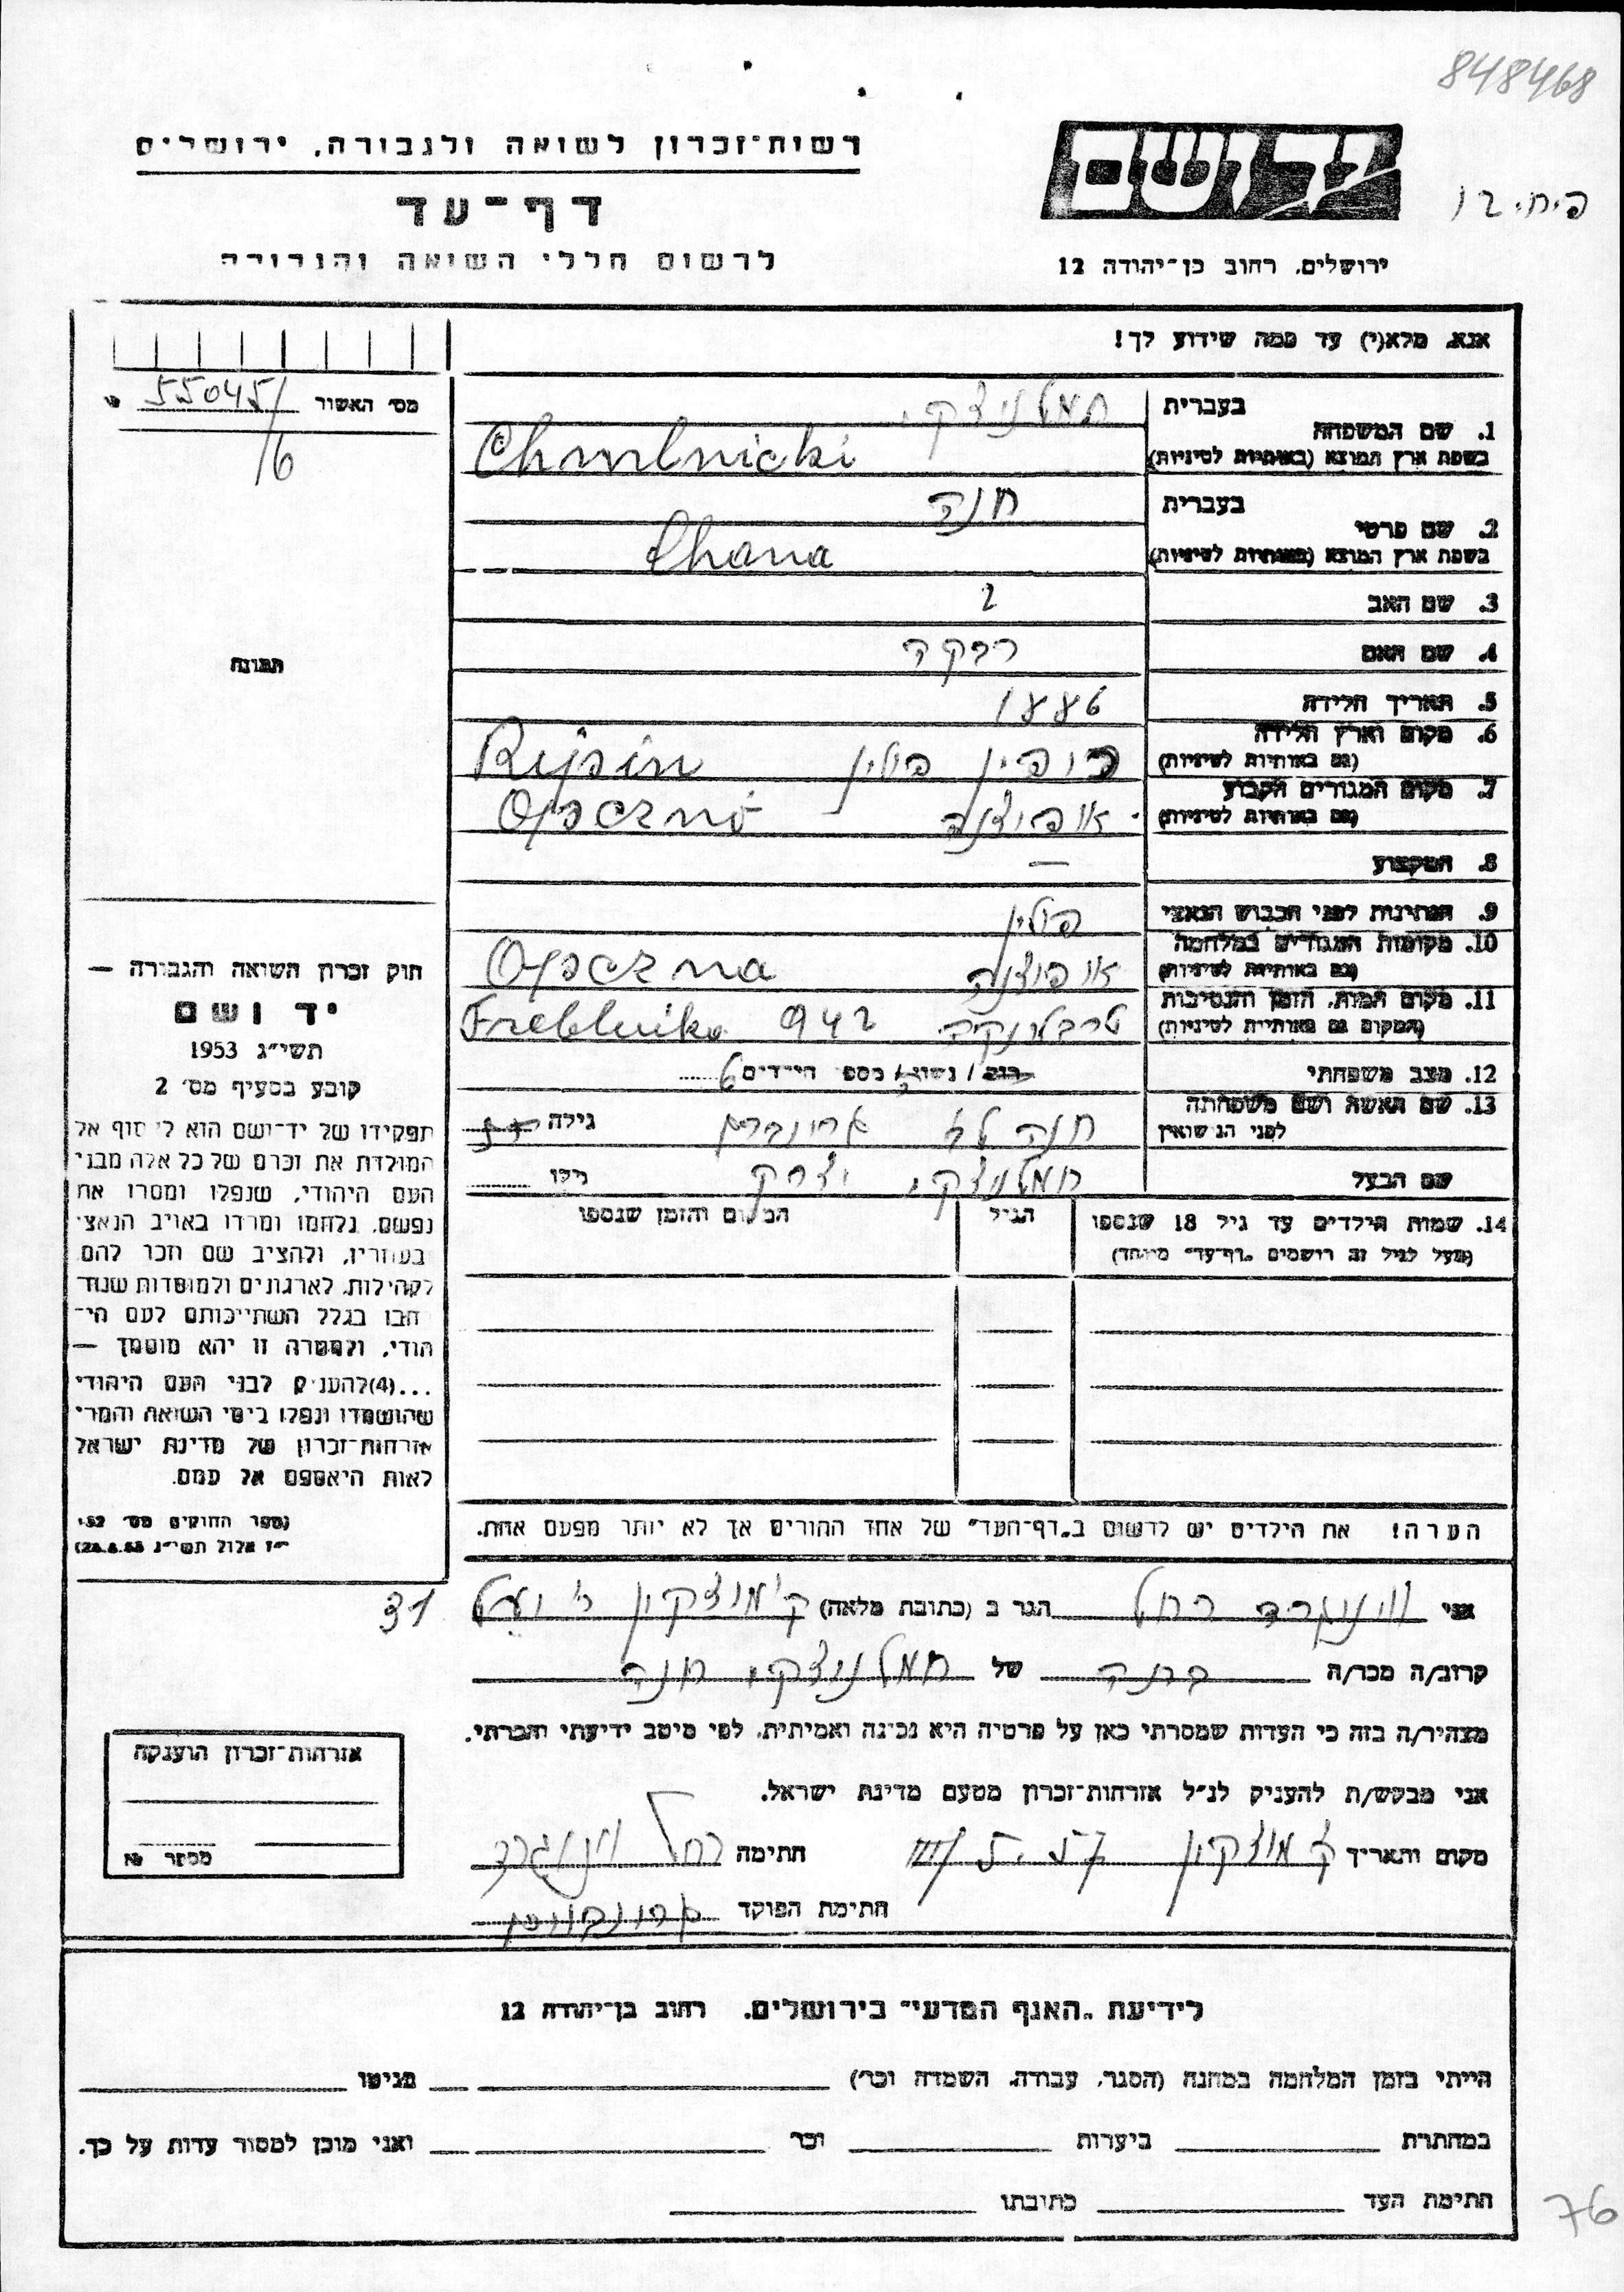 848468
רשות־זכרון לשואה ולגבורה, ירושלים
דף־עד
לרשום חללי השואה והגבורה
יד ושם
פ.ח. 12
ירושלים, רחוב בן־יהודה 12
אנא, מלא(י) עד כמה שידוע לך!
מס׳ האשור 55045/
16
1. שם המשפחה
בעברית חמלניצקי
בשפת ארץ המוצא (באותיות לטיניות) Chmlnicki
2. שם פרטי
בעברית חנה
בשפת ארץ המוצא (באותיות לטיניות) Chana
3. שם האב ?
4. שם האם רבקה
5. תאריך הלידה 1886
6. מקום וארץ הלידה
(גם באותיות לטיניות) פולין Ripin
7. מקום המגורים הקבוע
(גם באותיות לטיניות) אופוצנה Opoczno
8. המקצוע —
9. הנתינות לפני הכבוש הנאצי פולין
10. מקומות המגורים במלחמה
(גם באותיות לטיניות) אופוצנה Opoczna
11. מקום המות, הזמן והנסיבות
(המקום גם באותיות לטיניות) טרבלינקה 942 Treblinka
12. מצב משפחתי רוק/ נשוי/ מספר הילדים 6
13. שם האשה ושם משפחתה
לפני הנישואין חנה גילה
שם הבעל חמלניצקי יצחק גילו
14. שמות הילדים עד גיל 18 שנספו הגיל המקום והזמן שנספו
(מעל לגיל זה רושמים „דף־עד״ מיוחד)
הערה! את הילדים יש לרשום ב„דף־העד״ של אחד ההורים אך לא יותר מפעם אחת.
תמונה
חוק זכרון השואה והגבורה —
יד ושם
תשי״ג 1953
קובע בסעיף מס׳ 2
תפקידו של יד־ושם הוא לאסוף אל
המולדת את זכרם של כל אלה מבני
העם היהודי, שנפלו ומסרו את
נפשם, נלחמו ומרדו באויב הנאצי
ובעוזריו, ולהציב שם וזכר להם,
לקהילות, לארגונים ולמוסדות שנח־
רבו בגלל השתייכותם לעם הי־
הודי, ולמטרה זו יהא מוסמך —
...(4)להעניק לבני העם היהודי
שהושמדו ונפלו בימי השואה והמרי
אזרחות־זכרון של מדינת ישראל
לאות היאספם אל עמם.
(ספר החוקים מס׳ 132,
י״ז אלול תשי״ג 28.8.53)
אני וינוגרד רחל הגר ב (כתובת מלאה) ק׳ מוצקין 31
קרוב/ה מכר/ה בתה של חמלניצקי חנה
מצהיר/ה בזה כי העדות שמסרתי כאן על פרטיה היא נכונה ואמיתית, לפי מיטב ידיעתי והכרתי.
אני מבקש/ת להעניק לנ״ל אזרחות־זכרון מטעם מדינת ישראל.
מקום ותאריך ק׳ מוצקין 5.57 חתימה רחל וינוגרד
חתימת הפוקד
אזרחות־זכרון הוענקה
מספר №
לידיעת „האגף המדעי״ בירושלים, רחוב בן־יהודה 12
הייתי בזמן המלחמה במחנה (הסגר, עבודה, השמדה וכו׳) בגיטו
במחתרת ביערות וכו׳ ואני מוכן למסור עדות על כך.
חתימת העד כתובתו
76